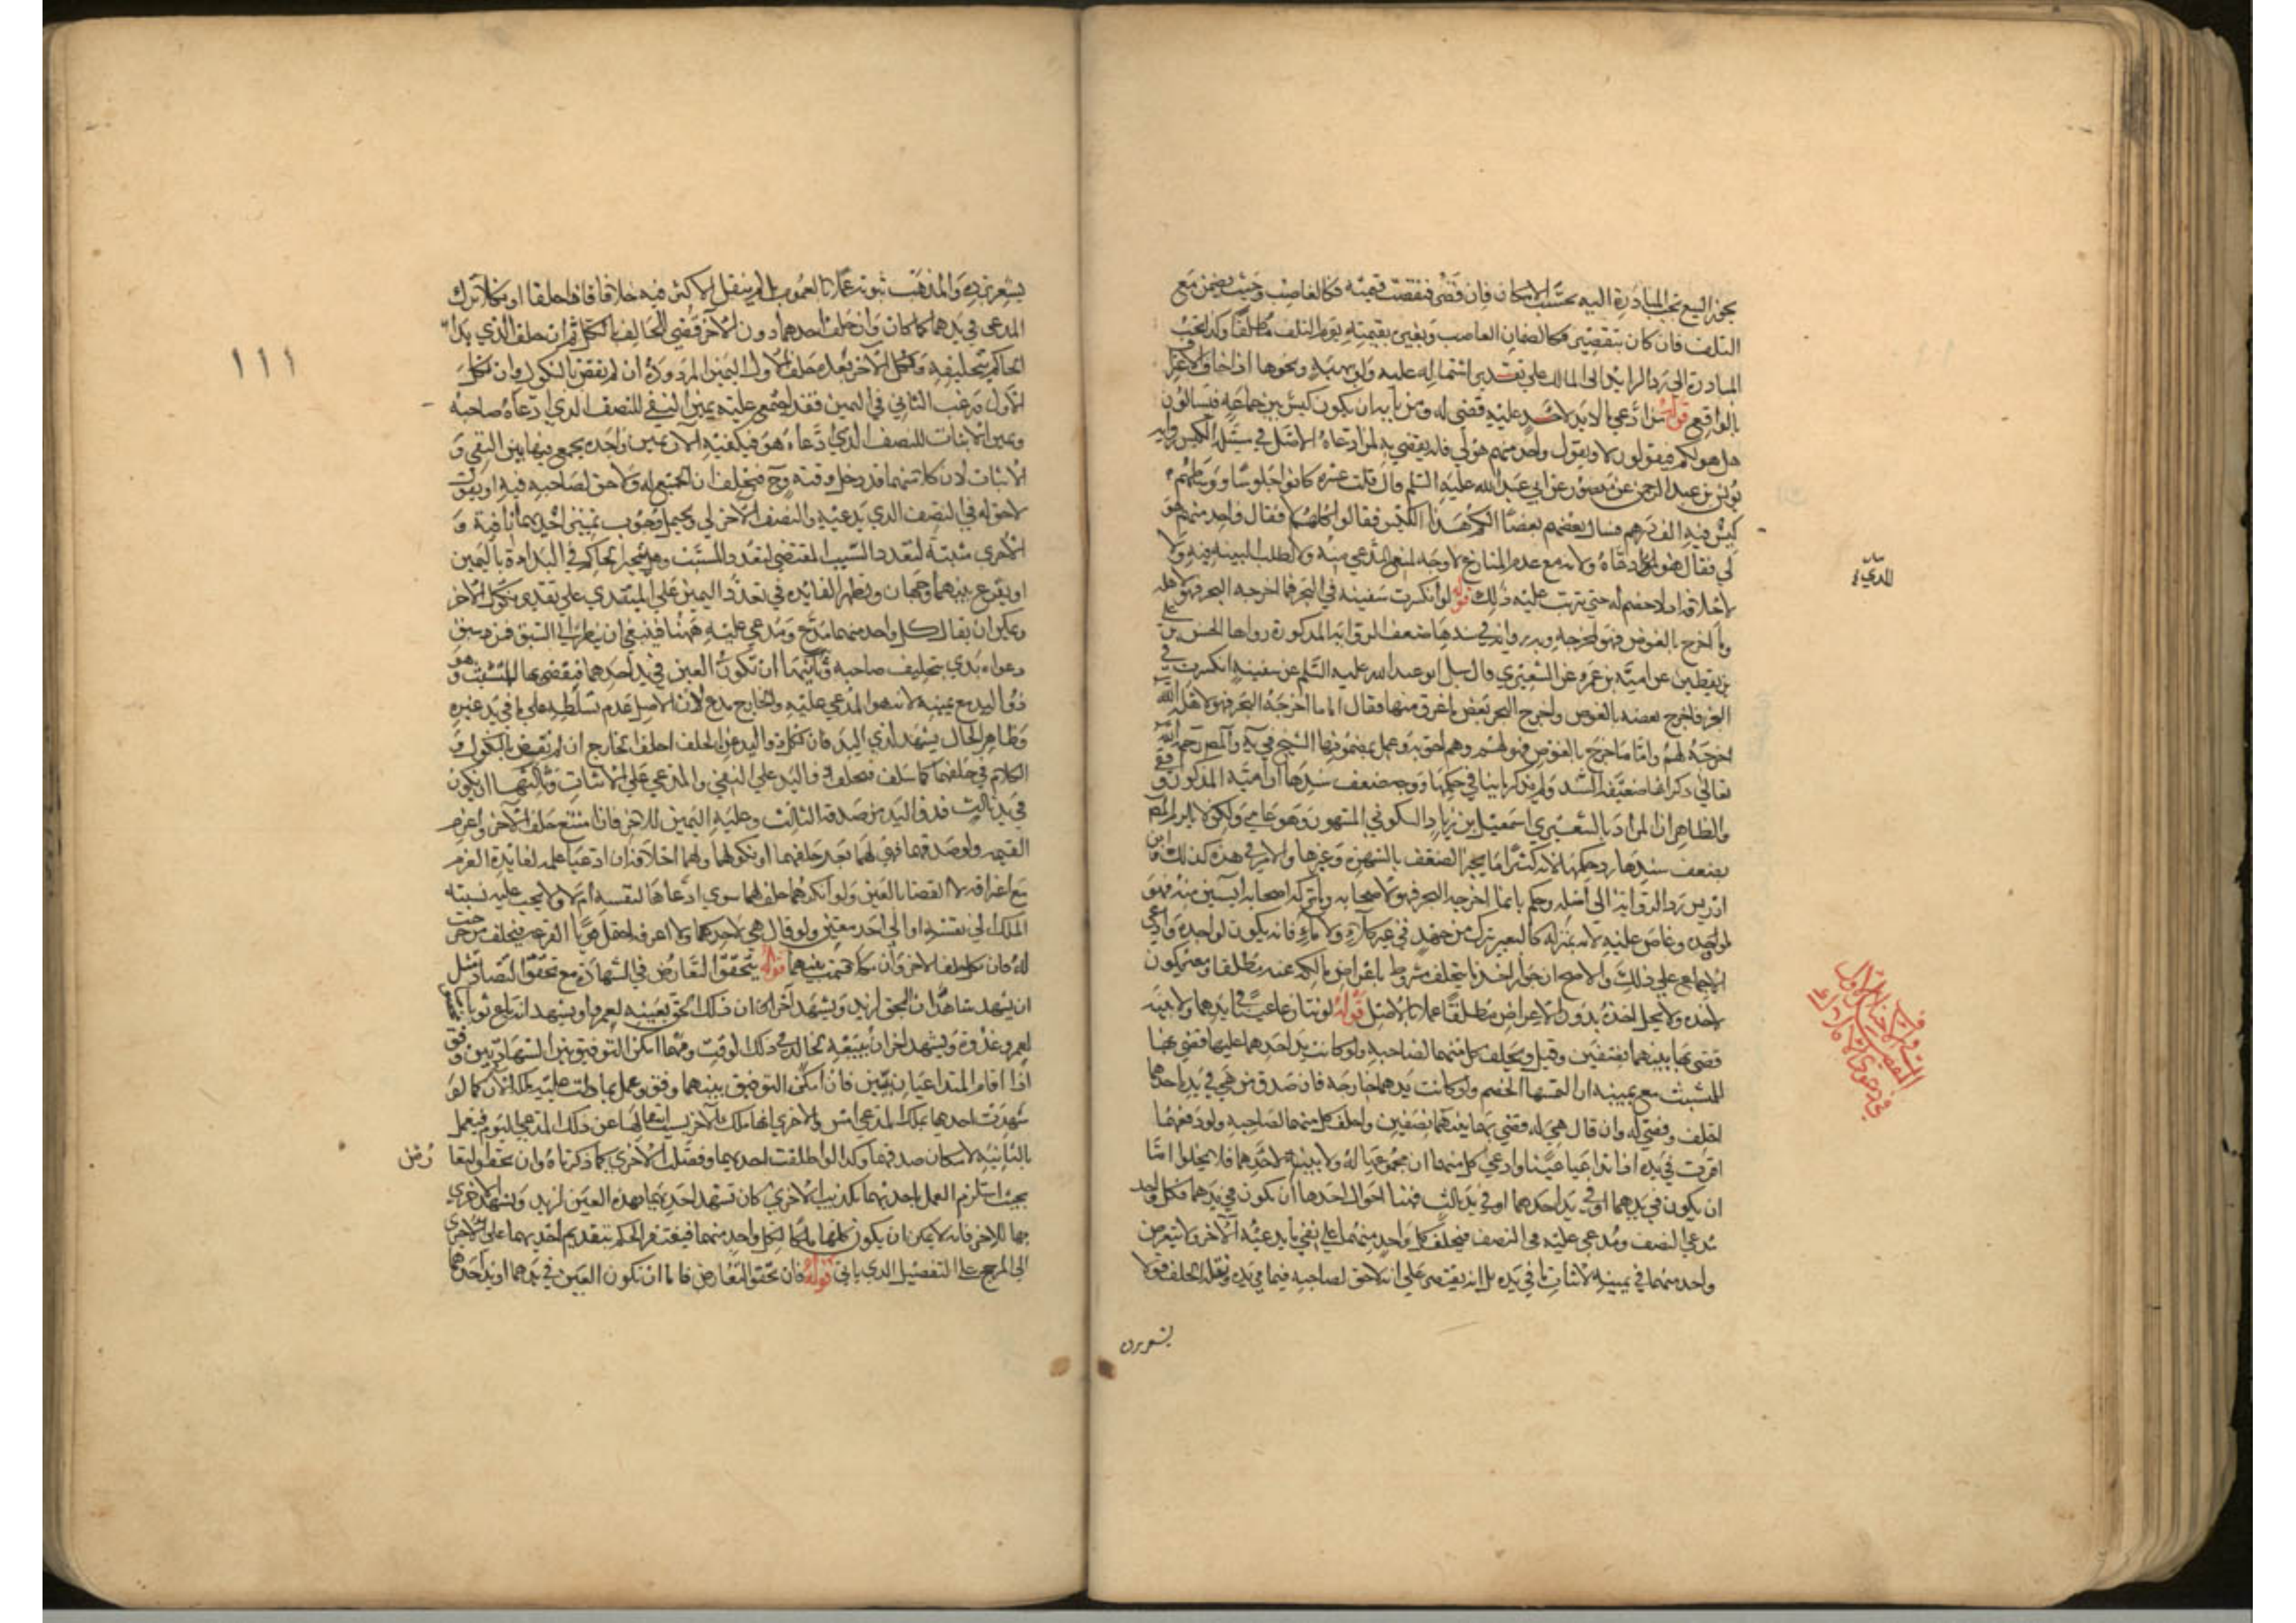 يجوز البيع تجب المبادرة اليه بحسب الامكان فان قصر فنقصت قيمته فكالغاصب وحيث يضمن مع
التلف فان كان بتقصير فكالضمان الغاصب وبغيره بقيمته يوم التلف مطلقا وكذا تجب
المبادرة الى رد الزايد الى المالك على تقدير اشتماله عليه ولو ببينة ونحوها
بالواقع قوله من ادعى ما لا يد لاحد عليه قضى له ومن بابه ان يكون كيس بين جماعة فيسالون
هل هو لكم فيقولون لا ويقول واحد منهم هو لي فانه يقضى به لمن ادعاه الاصل في مسئلة الكيس رواية
يونس بن عبد الرحمن عن منصور عن ابي عبد الله عليه السلم قال قلت عشرة كانوا جلوسا ووسطهم
كيس فيه الف درهم فسال بعضهم بعضا الكم هذا الكيس فقالوا كلهم لا فقال واحد منهم هو
لي فقال هو للذي ادعاه ولانه مع عدم المنازع لا وجه لمنع المدعي منه ولا لطلب البينة منه ولا
لاحلافه اذ لا خصم له حتى يترتب عليه ذلك قوله لو انكسرت سفينة في البحر فما اخرجه البحر فهو لاهله
وما اخرج بالغوص فهو لمخرجه وبه رواية في سندها ضعف الرواية المذكورة رواها الحسن بن علي
بن يقطين عن امية بن عمرو عن الشعيري قال سئل ابو عبد الله عليه السلم عن سفينة انكسرت في
البحر فاخرج بعضه بالغوص واخرج البحر بعض ما غرق منها فقال اما ما اخرجه البحر فهو لاهله الله
اخرجه لهم واما ما اخرج بالغوص فهو لهم وهم احق به وعمل بمضمونها الشيخ في ية والمصنف رحمه الله
تعالى ذكر انها ضعيفة السند ولم يذكر ما ينافي حكمها ووجه ضعف سندها ان امية المذكور واقفي
والظاهر ان المراد بالشعيري اسمعيل بن زياد السكوني المشهور وهو عامي ولكن لا يلزم
بضعف سندها رد حكمها لانه كثيرا ما يجبر الضعف بالشهرة وغيرها والامر في هذه كذلك وابن
ادريس رد الرواية الى اصله وحكم بان ما اخرجه البحر فهو لاصحابه وما تركه اصحابه آيسين منه فهو
لواجده وغاص عليه لانه بمنزلة كالبعير يترك من جهد في غير كلاء ولا ماء فانه يكون لواجده وادعى
الاجماع على ذلك والاصح ان جواز اخذ ما يتخلف مشروط باعراض مالكه عنه مطلقا ومعه يكون
لآخذه ولا يحل اخذه بدون الاعراض مطلقا عملا بالاصل قوله لو تنازعا عينا في يدهما ولا بينة
قضى بها بينهما نصفين وقيل ويحلف كل منهما لصاحبه ولو كانت يد احدهما عليها قضى بها
للمتشبث مع يمينه ان التمسها الخصم ولو كانت يدهما خارجة فان صدق من هي في يده احدهما
احلف وقضى له وان قال هي له قضى بها بينهما نصفين واحلف كل منهما لصاحبه ولو دفعهما
اقرت في يده اذا تداعيا عينا وادعى كل منهما ان مجموعها له ولا بينة لاحدهما فلا يخلوا اما
ان يكون في يدهما او في يد احدهما او في يد ثالث فهنا احوال احدها ان يكون في يدهما فكل واحد
مدعي النصف ومدعى عليه في النصف فيحلف كل واحد منهما على نفي ما يدعيه الآخر ولا يتعرض
واحد منهما في يمينه لاثبات ما في يده بل انه يقتصر على انه لا حق لصاحبه فيما في يده ونقله الحلف قولا
يشعر برده
المدعي
يشعر برده والمذهب ثبوته عملا بالعموم ولم ينقل الاكثر فيه خلافا فاذا حلفا او نكلا ترك
المدعى في يدهما كما كان وان حلف احدهما دون الآخر قضى للحالف بالكل ثم ان حلف الذي بدا
الحاكم بتحليفه ونكل الآخر بعده حلف الاول اليمين المردودة ان لم نقض بالنكول وان نكل
الاول ورغب الثاني في اليمين فقد اجتمع عليه يمين النفي للنصف الذي ادعاه صاحبه
ويمين الاثبات للنصف الذي ادعاه هو فيكفيه الآن يمين واحدة يجمع فيها بين النفي و
الاثبات لان كلا منهما قد دخل وقته وح فيحلف ان الجميع له ولا حق لصاحبه فيه او يقول
لا حق له في النصف الذي يدعيه والنصف الآخر لي ويحتمل وجوب يمينين احديهما نافية و
الاخرى مثبتة لتعدد السبب المقتضي لتعدد المسبب وهل يتخير الحاكم في البداءة باليمين
او يقرع بينهما وجهان وتظهر الفايدة في تعدد اليمين على المبتدي على تقدير نكول الآخر
ويمكن ان يقال كل واحد منهما مدع ومدعى عليه فهنا فينبغي ان ينظر الى السبق فمن سبق
دعواه بدي بتحليف صاحبه وثانيها ان تكون العين في يد احدهما فيقضى بها للمتشبث وهو
ذو اليد مع يمينه لانه هو المدعى عليه والخارج مدع لان الاصل عدم تسلطه على ما في يد غيره
وظاهر الحال يشهد لذي اليد فان نكل ذو اليد عن الحلف احلف الخارج ان لم نقض بالنكول و
الكلام في حلفهما كما سلف فيحلف ذو اليد على النفي والمدعي على الاثبات وثالثها ان يكون
في يد ثالث فذو اليد من صدقه الثالث وعليه اليمين للآخر فان امتنع حلف الآخر واغرم
القيمة ولو صدقهما فهي لهما بعد حلفهما او نكولهما ولهما احلافه ان ادعيا علمه لفايدة الغرم
مع اعترافه لا القضا بالعين ولو انكرهما حلف لهما سوى ادعاها لنفسه ام لا ولا يجب عليه نسبة
الملك الى نفسه او الى احد معين ولو قال هي لاحدهما ولا اعرفه احتمل قويا القرعة فيحلف من خرجت
له فان نكل حلف الآخر وان نكلا قسمت بينهما قوله يتحقق التعارض في الشهادة مع تحقق التضاد مثل
ان يشهد شاهدان بحق لزيد ويشهد آخران ان ذلك الحق بعينه لعمرو او يشهد انه باع ثوبا
لعمرو غدوة ويشهد اخران ببيعه لخالد في ذلك الوقت ومهما امكن التوفيق بين الشهادتين وفق
اذا اقام المتداعيان بينتين فان امكن التوفيق بينهما وفق وعمل بما دلت عليه كما لو
شهدت احدهما بملك المدعي امس والاخرى انها ملك الآخر انتقالها عن ذلك المدعي اليوم فيعمل
بالثانية لامكان صدقهما وكذا لو اطلقت احديهما وفصلت الاخرى بما ذكرناه وان تحقق التعارض
بحيث استلزم العمل باحديهما تكذيب الاخرى كان تشهد احديهما بهذه العين لزيد وتشهد الاخرى
بها للآخر فانه لا يمكن ان يكون كلها ملكا لكل واحد منهما فيفتقر الحكم بتقديم احديهما على الاخرى
الى المرجح على التفصيل الذي ياتي قوله فان تحقق التعارض فاما ان تكون العين في يدهما او يد احدهما
١١١